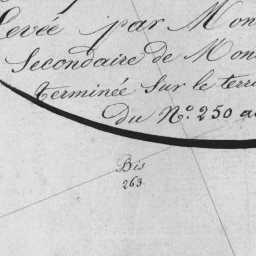 Levée par Mon
Secondaire de Mon
terminée sur le terr
du N.º 250 a
Bis
263